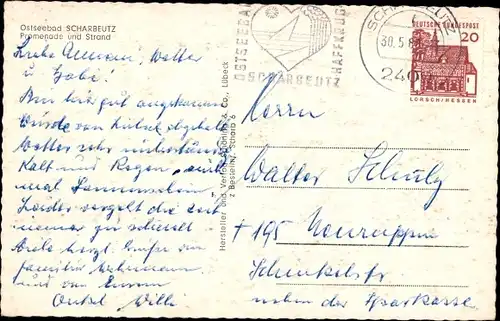 Ostseebad SCHARBEUTZ
Promenade und Strand
Liebe Annemie, Walter
u Gabi!
Bin hier gut angekommen
Wurde von Lübeck abgeholt
Wetter sehr unbeständig
Kalt und Regen, auch
mal Sonnenschein
Leider vergeht die Zeit
immer zu schnell
Viele herzl. Grüße von
Familie
und von Eurem
Onkel Willi
Hersteller und Vertrieb Schöning & Co., Lübeck
Bestellnr. Scharb 6
OSTSEEBAD
SCHARBEUTZ
HAFFKRUG
SCHARBEUTZ
30.5.6
240
DEUTSCHE BUNDESPOST
20
LORSCH/HESSEN
Herrn
Walter Schulz
+ 195 Neuruppin
Schinkelstr
neben der Sparkasse